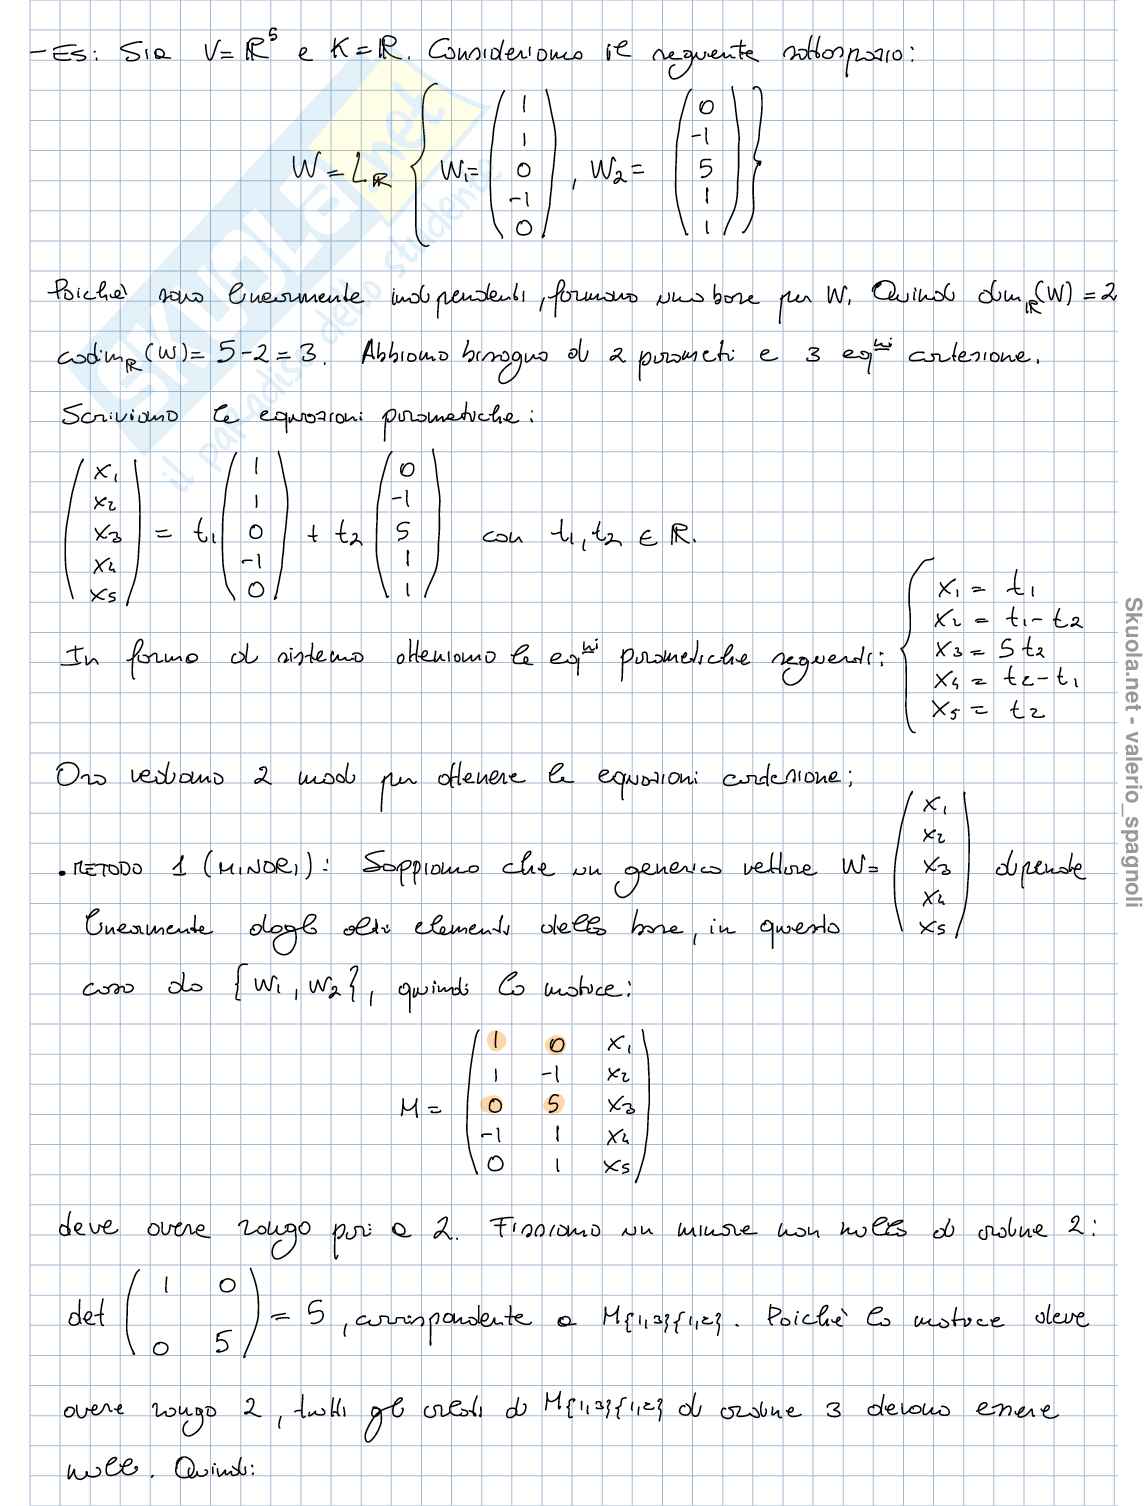 - Es: Sia V = ℝ⁵ e K = ℝ. Consideriamo il seguente sottospazio:
W = L_ℝ { w₁ = (1 1 0 -1 0), w₂ = (0 -1 5 1 1) }
Poiché sono linearmente indipendenti, formano una base per W. Quindi dim_ℝ(W) = 2
codim_ℝ(W) = 5-2 = 3. Abbiamo bisogno di 2 parametri e 3 eqⁿⁱ cartesiane.
Scriviamo le equazioni parametriche:
(x₁ x₂ x₃ x₄ x₅) = t₁ (1 1 0 -1 0) + t₂ (0 -1 5 1 1) con t₁, t₂ ∈ ℝ.
In forma di sistema otteniamo le eqⁿⁱ parametriche seguenti:
{ x₁ = t₁
x₂ = t₁ - t₂
x₃ = 5t₂
x₄ = t₂ - t₁
x₅ = t₂
Ora vediamo 2 modi per ottenere le equazioni cartesiane:
• METODO 1 (MINORI): Sappiamo che un generico vettore w = (x₁ x₂ x₃ x₄ x₅) dipende
linearmente dagli altri elementi della base, in questo
caso da {w₁, w₂}, quindi la matrice:
M =
1 0 x₁
1 -1 x₂
0 5 x₃
-1 1 x₄
0 1 x₅
deve avere rango pari a 2. Fissiamo un minore non nullo di ordine 2:
det (1 0
0 5) = 5, corrispondente a M{1,3}{1,2}. Poiché la matrice deve
avere rango 2, tutti gli orlati di M{1,3}{1,2} di ordine 3 devono essere
nulli. Quindi:
Skuola.net - valerio_spagnoli
SKUOLA.net
il paradiso dello studente